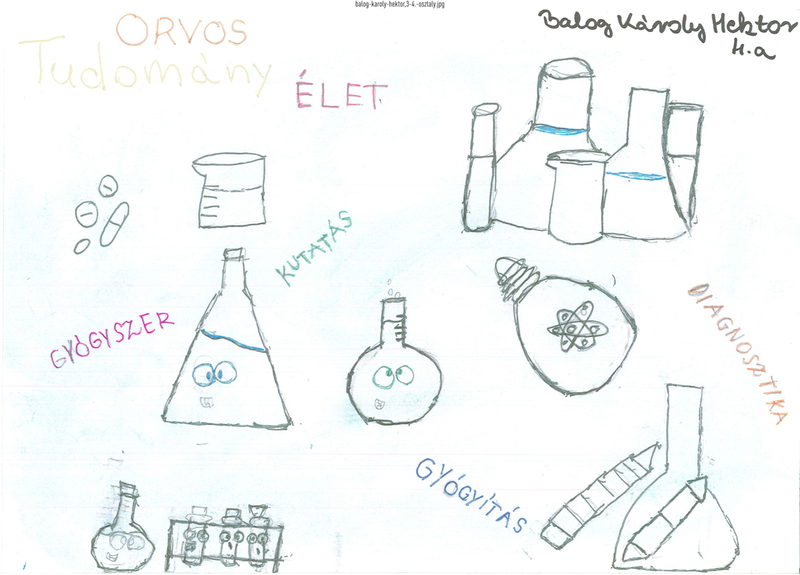 balog-karoly-hektor,3-4.-osztaly.jpg
Balog Károly Hektor
4.a
ORVOS
Tudomány
ÉLET
KUTATÁS
GYÓGYSZER
DIAGNOSZTIKA
GYÓGYÍTÁS